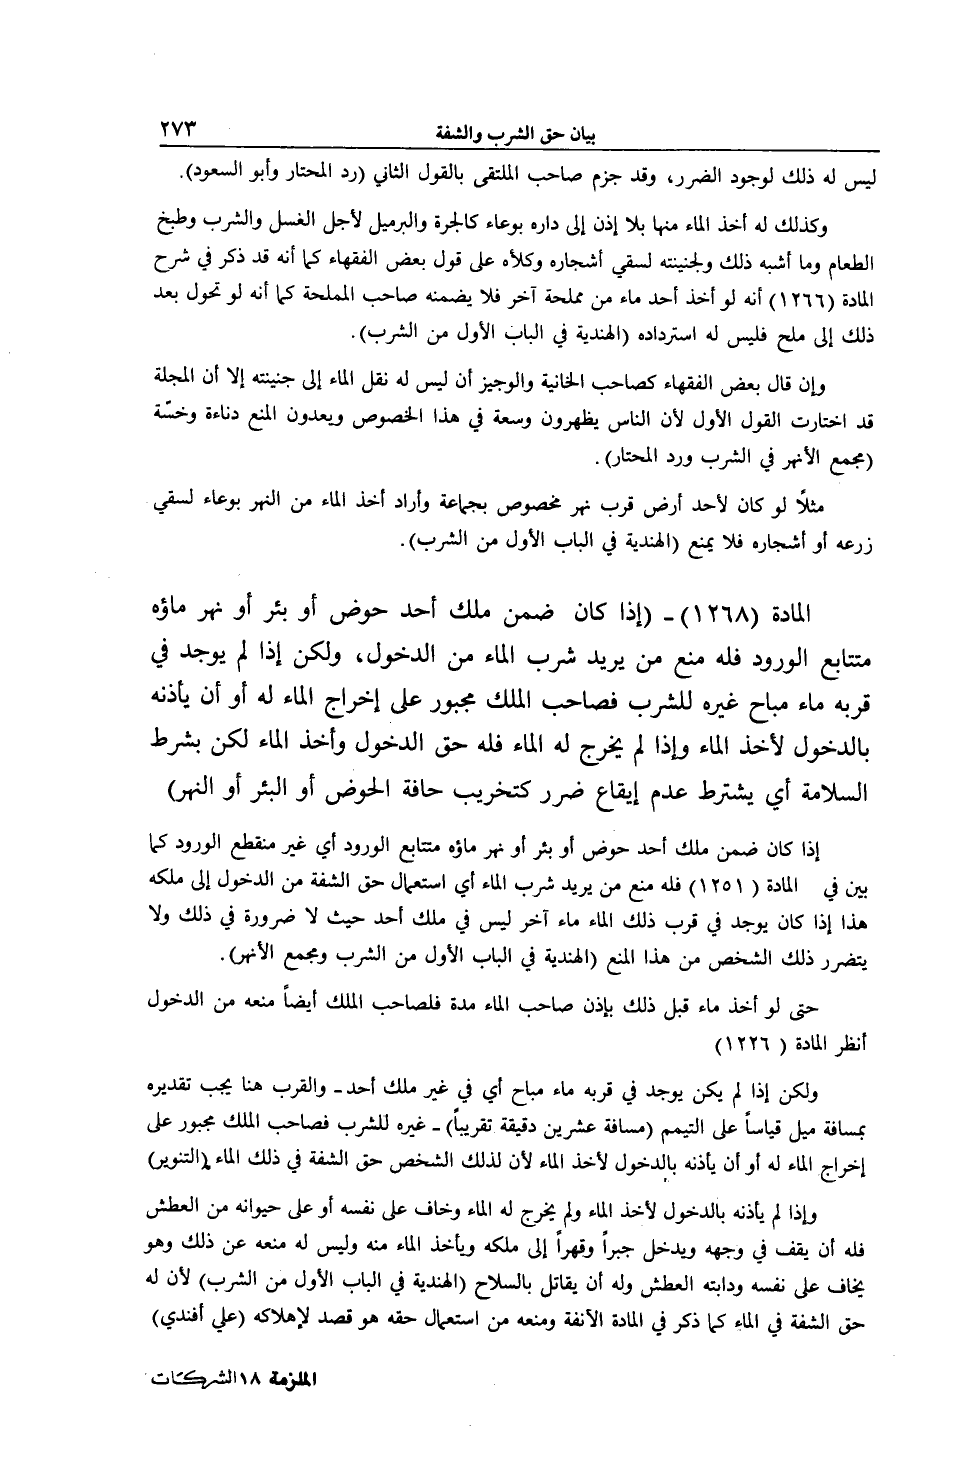 بيان حق الشرب والشفة ٢٧٣
ليس له ذلك لوجود الضرر، وقد جزم صاحب الملتقى بالقول الثاني (رد المحتار وأبو السعود).
وكذلك له أخذ الماء منها بلا إذن إلى داره بوعاء كالجرة والبرميل لأجل الغسل والشرب وطبخ
الطعام وما أشبه ذلك ولجنينته لسقي أشجاره وكلأه على قول بعض الفقهاء كما أنه قد ذكر في شرح
المادة (١٢٦٦) أنه لو أخذ أحد ماء من مملحة آخر فلا يضمنه صاحب المملحة كما أنه لو تحول بعد
ذلك إلى ملح فليس له استرداده (الهندية في الباب الأول من الشرب).
وإن قال بعض الفقهاء كصاحب الخانية والوجيز أن ليس له نقل الماء إلى جنينته إلا أن المجلة
قد اختارت القول الأول لأن الناس يظهرون وسعة في هذا الخصوص ويعدون المنع دناءة وخسّة
(مجمع الأنهر في الشرب ورد المحتار).
مثلاً لو كان لأحد أرض قرب نهر مخصوص بجماعة وأراد أخذ الماء من النهر بوعاء لسقي
زرعه أو أشجاره فلا يمنع (الهندية في الباب الأول من الشرب).
المادة (١٢٦٨) ـ (إذا كان ضمن ملك أحد حوض أو بئر أو نهر ماؤه
متتابع الورود فله منع من يريد شرب الماء من الدخول، ولكن إذا لم يوجد في
قربه ماء مباح غيره للشرب فصاحب الملك مجبور على إخراج الماء له أو أن يأذنه
بالدخول لأخذ الماء وإذا لم يخرج له الماء فله حق الدخول وأخذ الماء لكن بشرط
السلامة أي يشترط عدم إيقاع ضرر كتخريب حافة الحوض أو البئر أو النهر)
إذا كان ضمن ملك أحد حوض أو بئر أو نهر ماؤه متتابع الورود أي غير منقطع الورود كما
بين في المادة (١٢٥١) فله منع من يريد شرب الماء أي استعمال حق الشفة من الدخول إلى ملكه
هذا إذا كان يوجد في قرب ذلك الماء ماء آخر ليس في ملك أحد حيث لا ضرورة في ذلك ولا
يتضرر ذلك الشخص من هذا المنع (الهندية في الباب الأول من الشرب ومجمع الأنهر).
حتى لو أخذ ماء قبل ذلك بإذن صاحب الماء مدة فلصاحب الملك أيضاً منعه من الدخول
أنظر المادة (١٢٢٦)
ولكن إذا لم يكن يوجد في قربه ماء مباح أي في غير ملك أحد ـ والقرب هنا يجب تقديره
بمسافة ميل قياساً على التيمم (مسافة عشرين دقيقة تقريباً) ـ غيره للشرب فصاحب الملك مجبور على
إخراج الماء له أو أن يأذنه بالدخول لأخذ الماء لأن لذلك الشخص حق الشفة في ذلك الماء (التنوير)
وإذا لم يأذنه بالدخول لأخذ الماء ولم يخرج له الماء وخاف على نفسه أو على حيوانه من العطش
فله أن يقف في وجهه ويدخل جبراً وقهراً إلى ملكه ويأخذ الماء منه وليس له منعه عن ذلك وهو
يخاف على نفسه ودابته العطش وله أن يقاتل بالسلاح (الهندية في الباب الأول من الشرب) لأن له
حق الشفة في الماء كما ذكر في المادة الآنفة ومنعه من استعمال حقه هو قصد لإهلاكه (علي أفندي)
الملزمة ١٨ الشركات